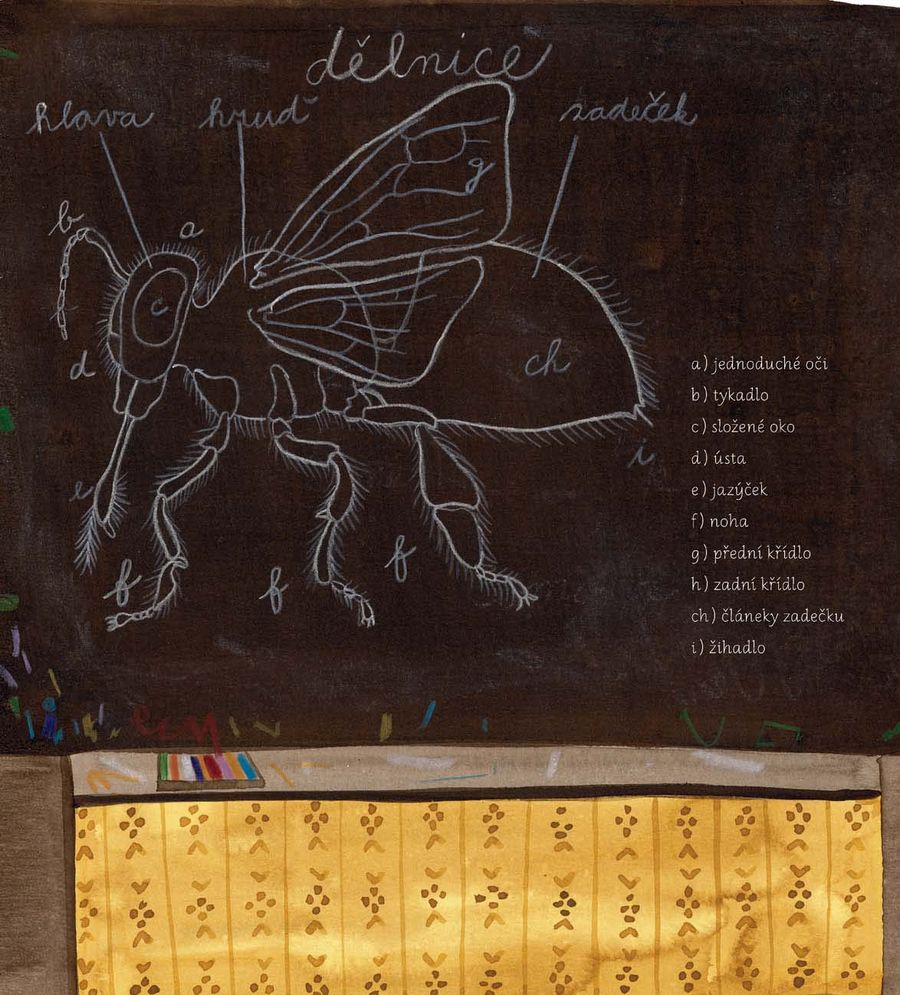 dělnice
hlava hruď zadeček
g
b
a
c
d
ch
a) jednoduché oči
b) tykadlo
c) složené oko
d) ústa
i
e) jazýček
e
f) noha
g) přední křídlo
f f f
h) zadní křídlo
ch) článeky zadečku
i) žihadlo